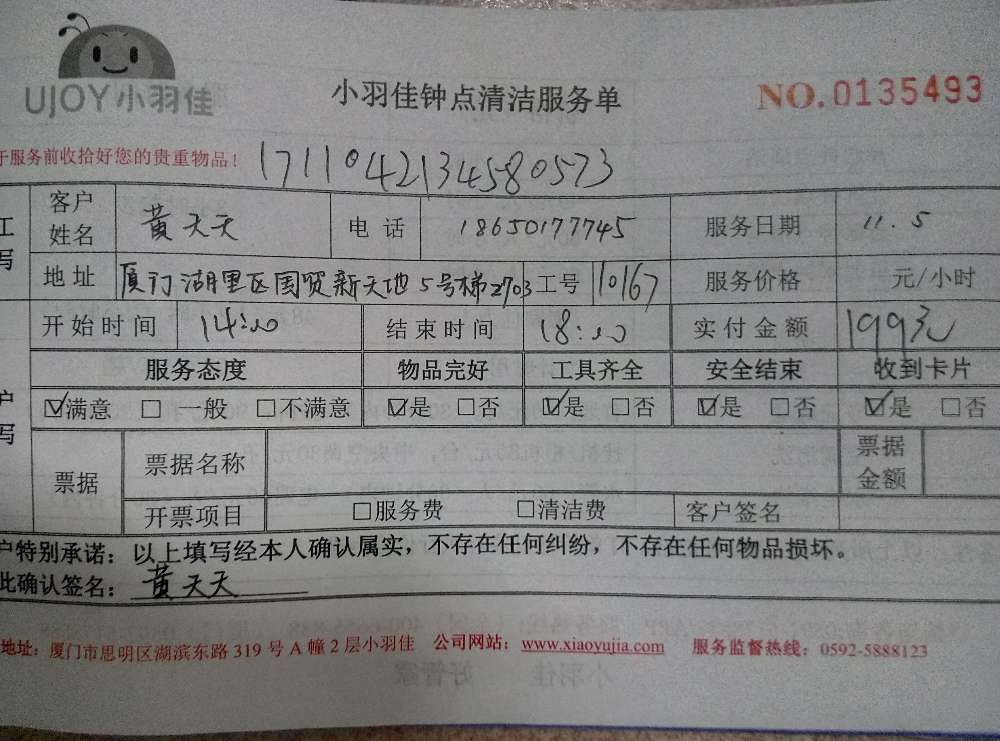 UJOY小羽佳
小羽佳钟点清洁服务单
NO.0135493
于服务前收拾好您的贵重物品！
1711042134580573
工
写
客户姓名 黄天天 电话 18650177745 服务日期 11.5
地址 厦门湖里区国贸新天地5号梯2703 工号 10167 服务价格 元/小时
开始时间 14:00 结束时间 18:00 实付金额 199元
服务态度 物品完好 工具齐全 安全结束 收到卡片
户
写
☑满意 □一般 □不满意 ☑是 □否 ☑是 □否 ☑是 □否 ☑是 □否
票据 票据名称 票据金额
开票项目 □服务费 □清洁费 客户签名
户特别承诺：以上填写经本人确认属实，不存在任何纠纷，不存在任何物品损坏。
此确认签名：黄天天
地址：厦门市思明区湖滨东路319号A幢2层小羽佳 公司网站：www.xiaoyujia.com 服务监督热线：0592-5888123